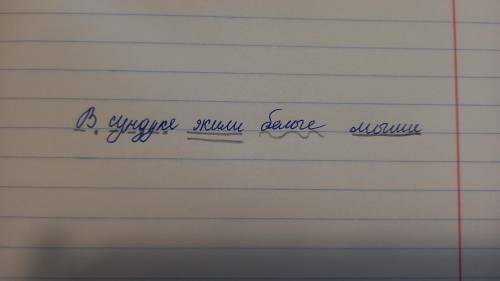 В сундуке жили белые мыши